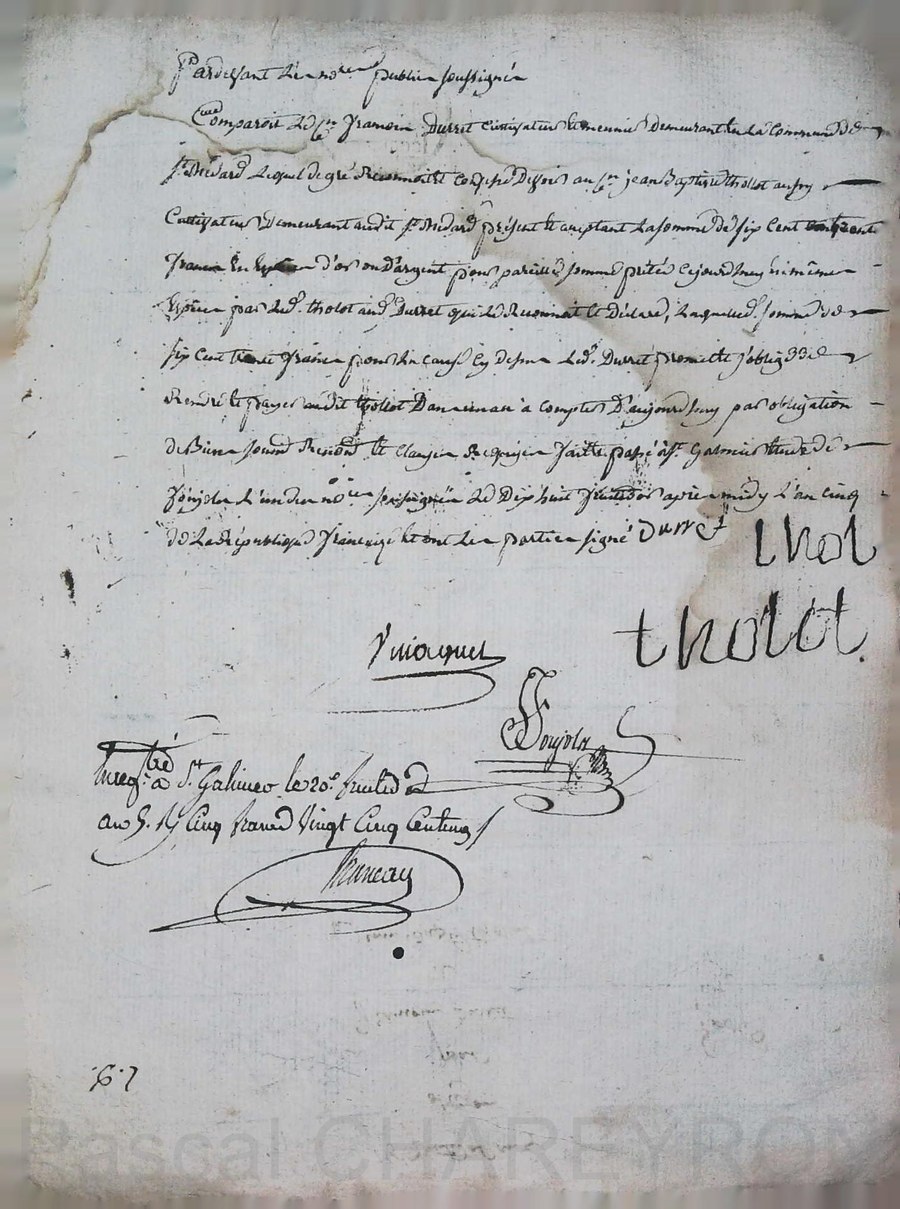 Pardevant Les no.res publics soussignés
Comparoit Le C.en francois Durret Cultivateur demeurant en La Commune de
S.t Médard Lequel de gré Reconnoit et Confesse Devoir au C.en jean Baptiste thollot aussy
Cultivateur Demeurant audit S.t Médard présent et acceptant La somme de six Cent trente
francs En Espèces d'or ou d'argent pour pareille somme prêtée cejourd'huy en mêmes
Espèces par Led. tholot aud. Durret qui Le Reconnoit et Déclare, Laquelle d. somme de
six Cent trente francs pour La cause Cy dessus Led. Durret promet et s'oblige de
Rendre et payer audit thollot Dans un an à Compter D'aujourd'huy par obligation
de Biens soumis Renon.d et Clauses Requises fait et passé à S.t Galmier Etude de
Soujols L'un des no.res soussignés Le Dix huit fructidor après midy L'an Cinq
de La République française et ont Les parties signé Durret thol
tholot.
Soujols
Enreg.tré à S.t Galmier le 20.e fructid.
an 5. Rç Cinq francs Vingt Cinq Centimes
Pascal CHAREYRON